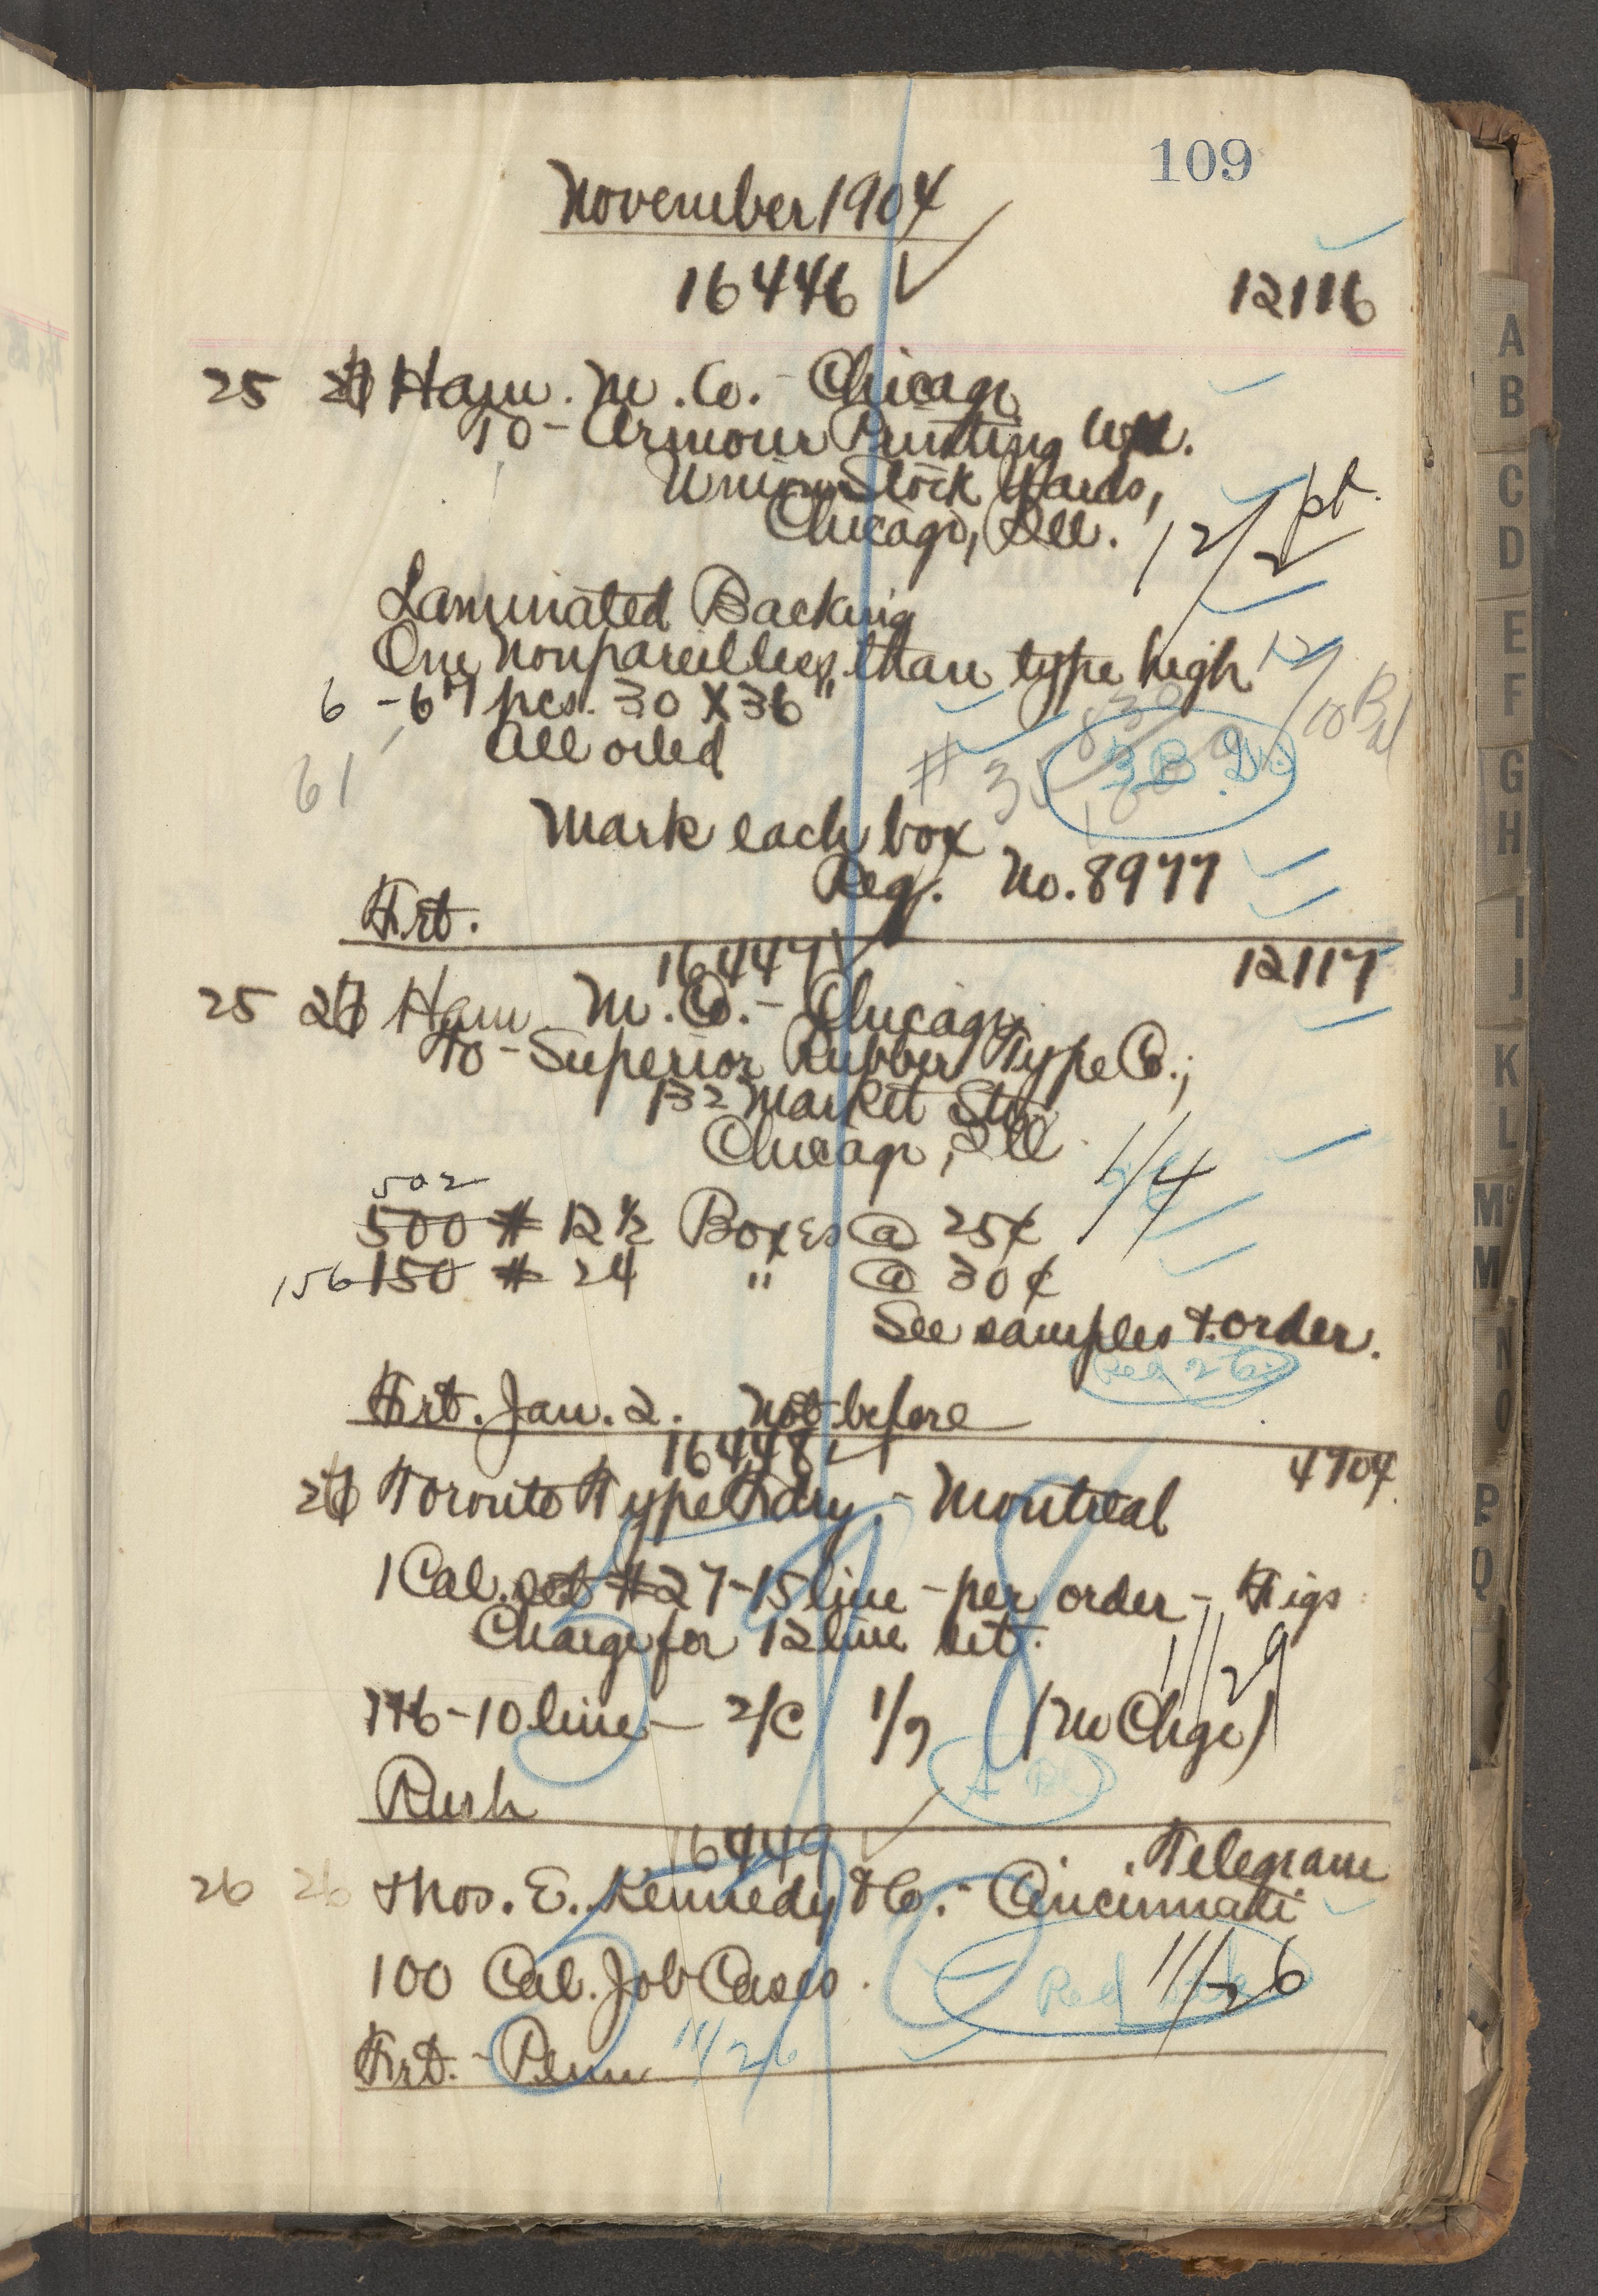 109
November 1904
16446
12116
25 Ham. M. Co. - Chicago
To - Armour Printing
Union Stock Yards,
Chicago, Ill.
12/2 pt.
Laminated Backing
One Nonpareil less than type high
12/10 Bal
6 - 67 pcs. 30 X 36"
All oiled
61
3 B
Mark each box
Req. No. 8977
Frt.
16447
12117
25 Ham M. Co. - Chicago
To - Superior Rubber Type Co.,
132 Market St.,
Chicago, Ill
1/4
502
500 # 12 1/2 Boxes @ 25¢
156 150 # 24 " @ 30¢
See samples & order.
Frt. Jan. 2. Not before
16448
4704
Toronto Type Fdry. - Montreal
1 Cal. set #27-15 line - per order - Figs
Charge for 12 line set.
11/29
146-10 line - 2/C 1/9 (No Chge)
Rush
16449
Telegram
26 26 Thos. E. Kennedy & Co. - Cincinnati
100 Cal. Job Cases.
11/26
Frt. - Penn 11/26
A
B
C
D
E
F
G
H
I
J
K
L
Mc
M
N
O
P
Q